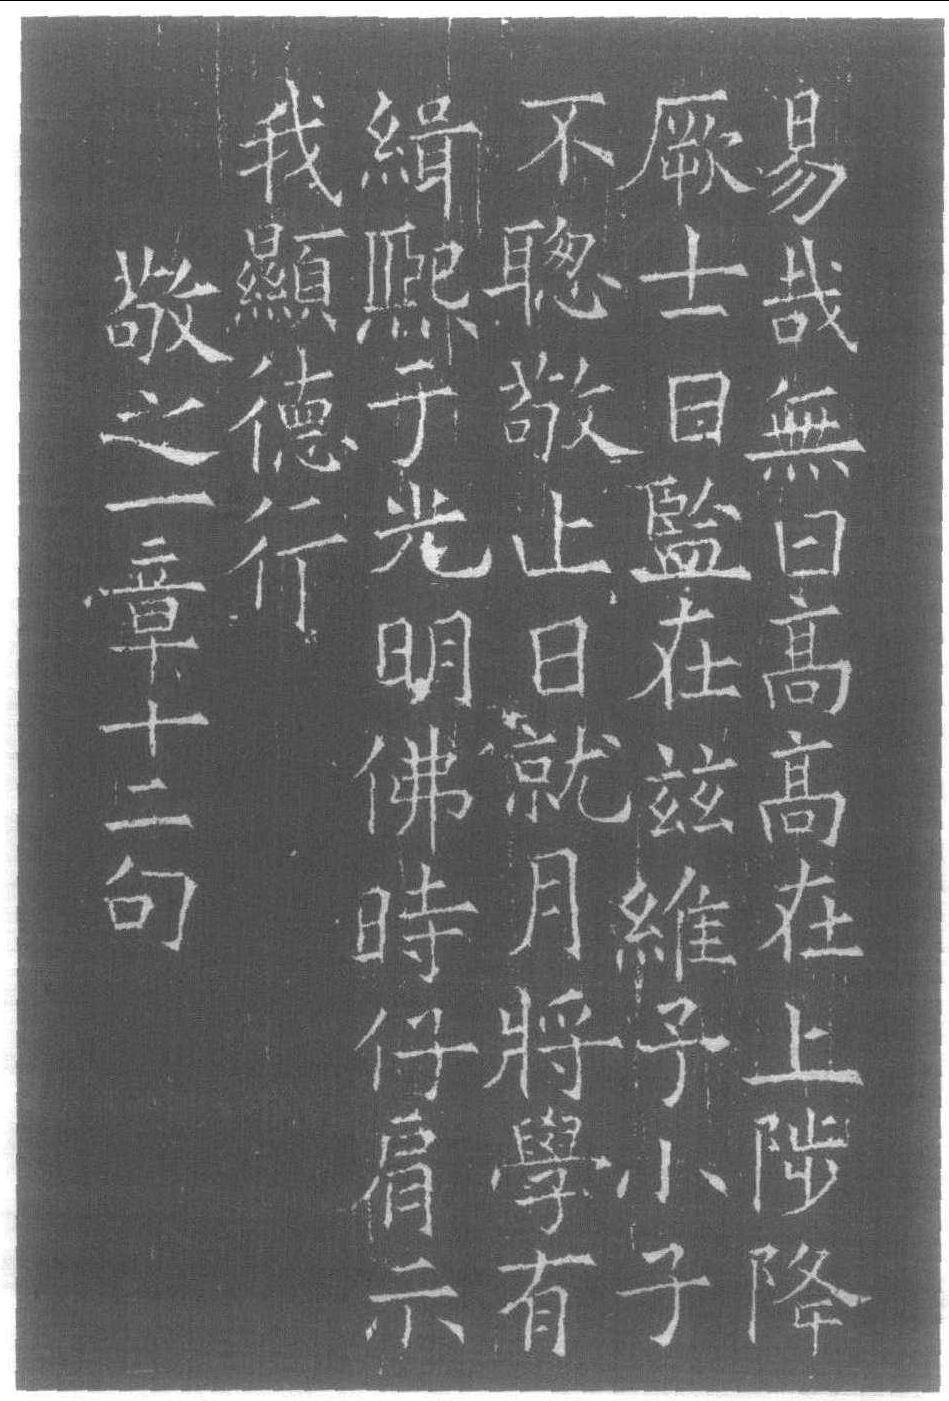 易哉無曰髙髙在上陟降
厥士日監在兹維予小子
不聦敬止日就月將學有
緝熈于光明佛時仔肩示
我顯德行
敬之一章十二句